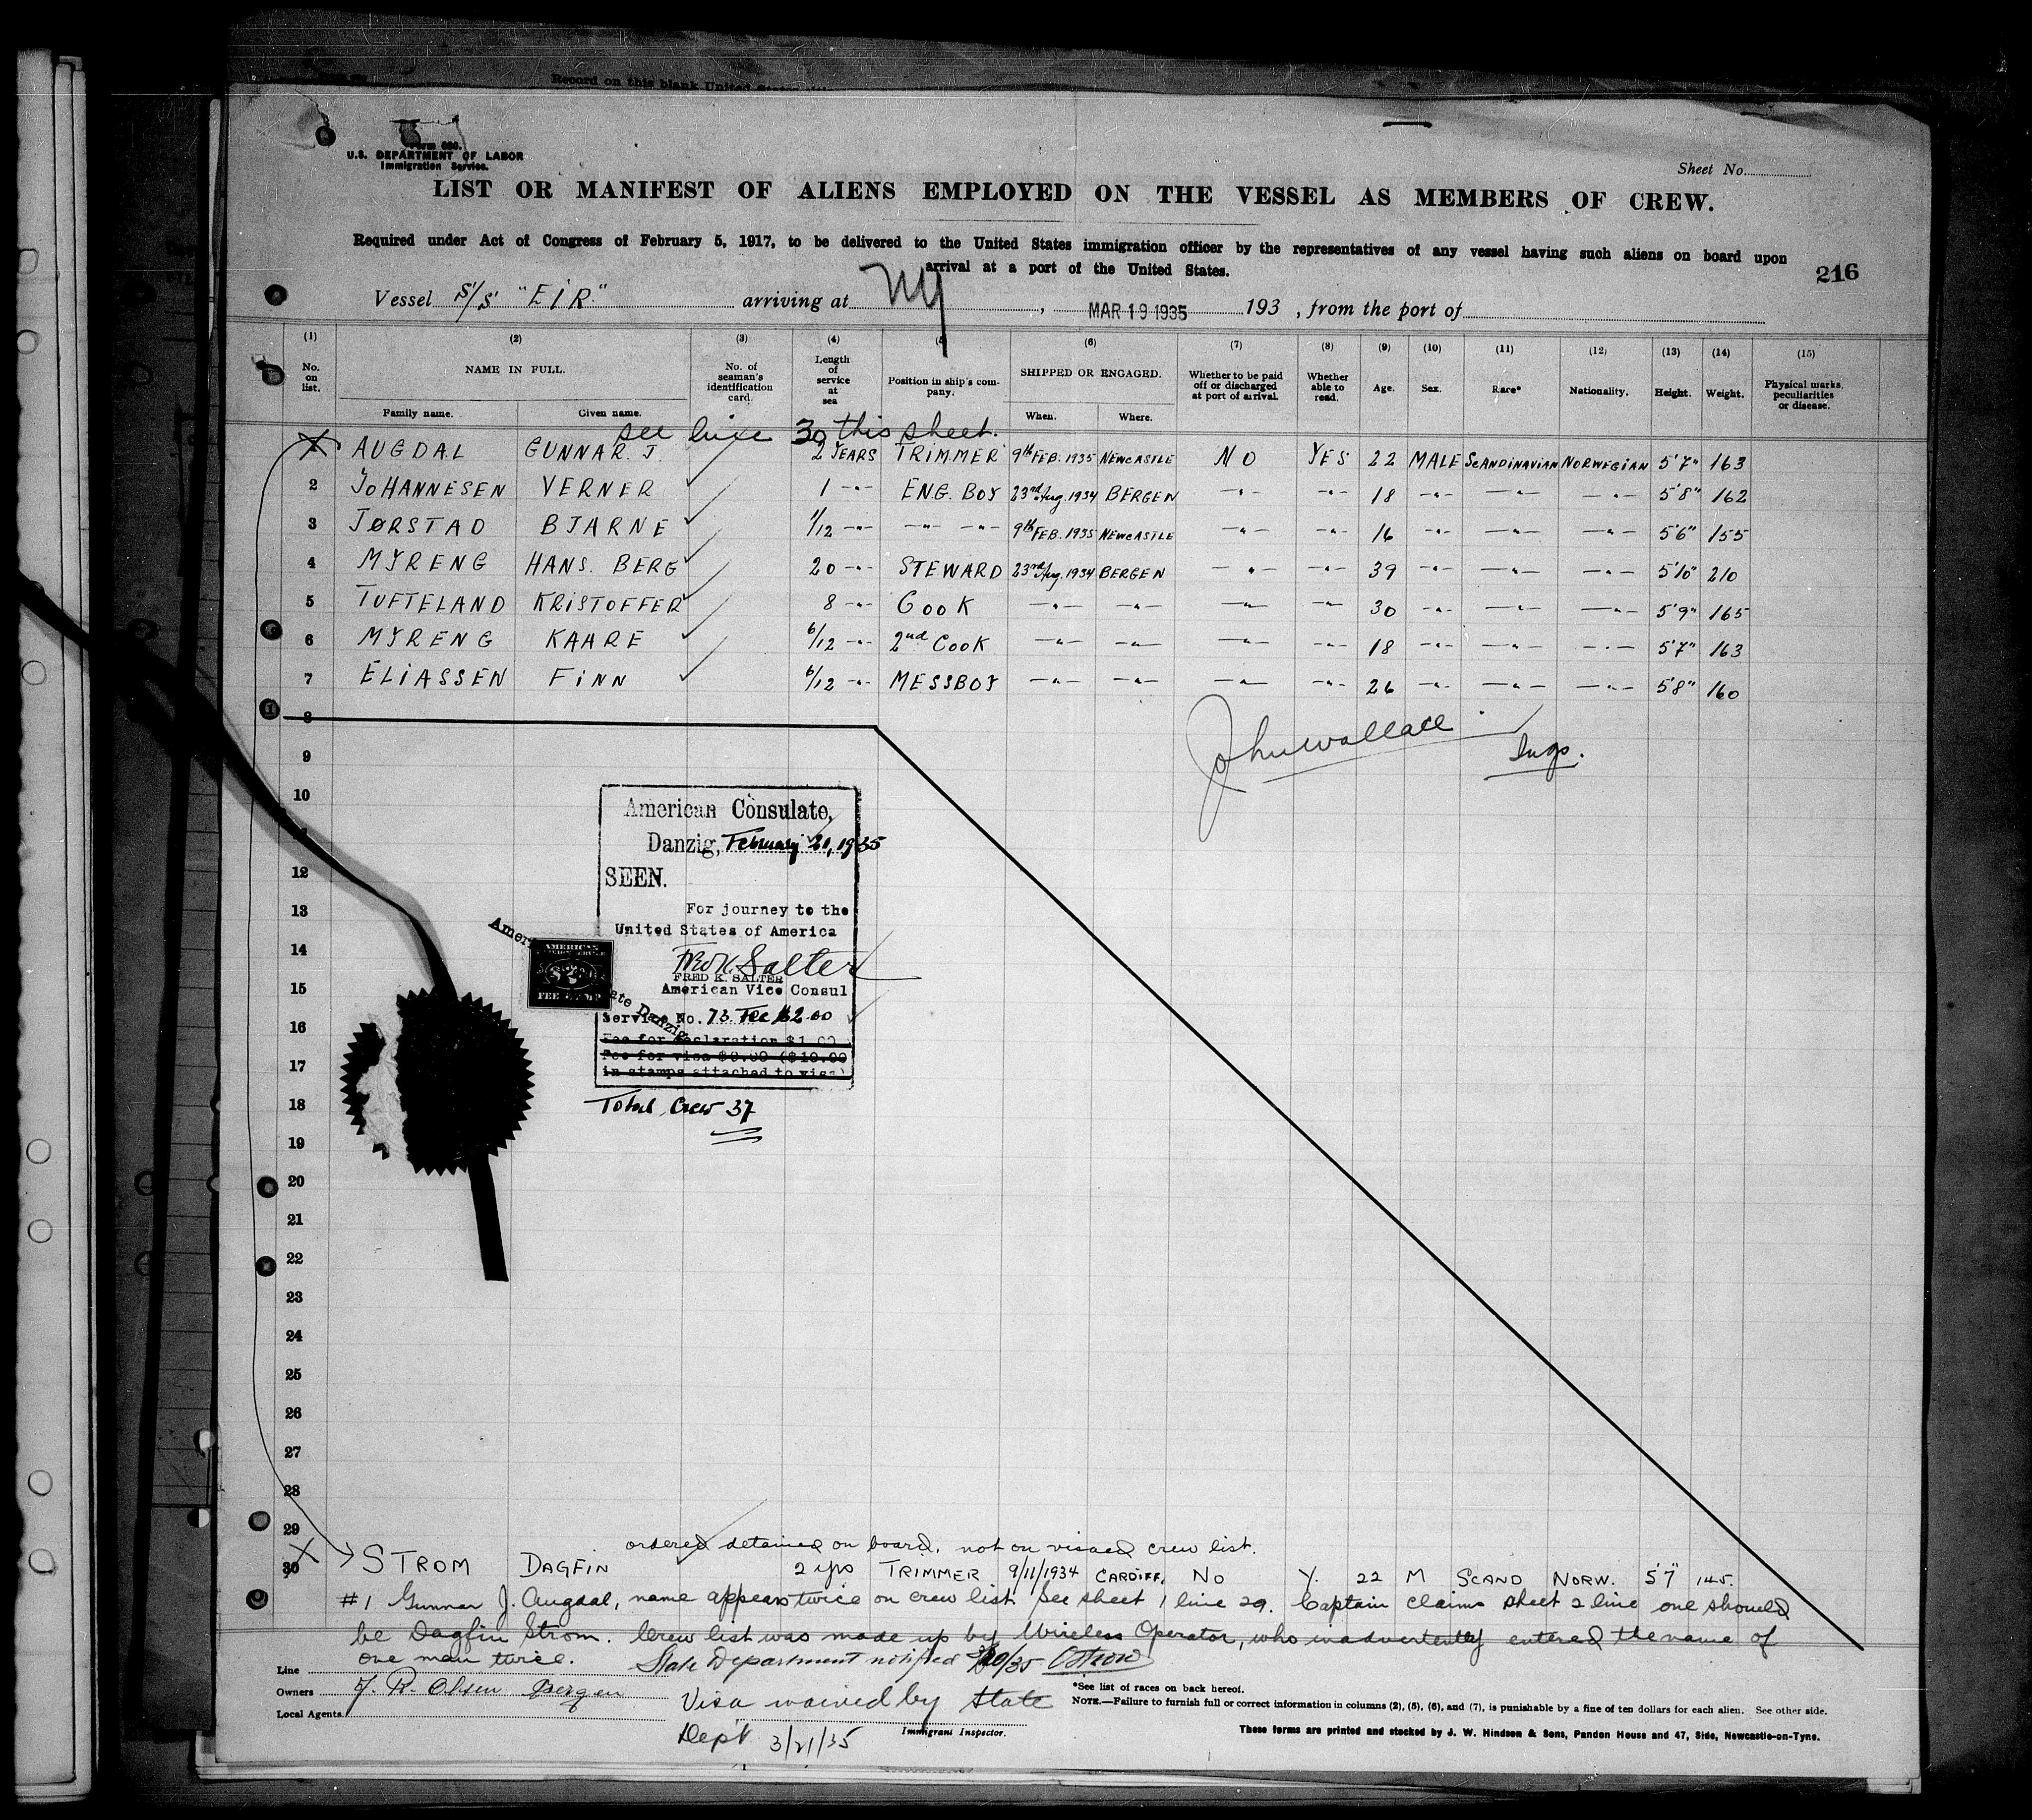 Record on this blank United States
Form 680.
U.S. DEPARTMENT OF LABOR
Immigration Service.
Sheet No.
LIST OR MANIFEST OF ALIENS EMPLOYED ON THE VESSEL AS MEMBERS OF CREW.
Required under Act of Congress of February 5, 1917, to be delivered to the United States immigration officer by the representatives of any vessel having such aliens on board upon
arrival at a port of the United States.
216
Vessel S/S "EIR" arriving at NY, MAR 19 1935 193 , from the port of
(1) (2) (3) (4) (5) (6) (7) (8) (9) (10) (11) (12) (13) (14) (15)
No. on list. NAME IN FULL. Family name. Given name. No. of seaman's identification card. Length of service at sea Position in ship's company. SHIPPED OR ENGAGED. When. Where. Whether to be paid off or discharged at port of arrival. Whether able to read. Age. Sex. Race* Nationality. Height. Weight. Physical marks, peculiarities or disease.
see line 30 this sheet.
1 AUGDAL GUNNAR J. 2 YEARS TRIMMER 9th FEB. 1935 NEWCASTLE NO YES 22 MALE SCANDINAVIAN NORWEGIAN 5'7" 163
2 JOHANNESEN VERNER 1 -"- ENG. BOY 23rd Aug. 1934 BERGEN -"- -"- 18 -"- -"- -"- 5'8" 162
3 JØRSTAD BJARNE 1/12 -"- -"- -"- 9th FEB. 1935 NEWCASTLE -"- -"- 16 -"- -"- -"- 5'6" 155
4 MYRENG HANS. BERG 20 -"- STEWARD 23rd Aug. 1934 BERGEN -"- -"- 39 -"- -"- -"- 5'10" 210
5 TUFTELAND KRISTOFFER 8 -"- COOK -"- -"- -"- -"- 30 -"- -"- -"- 5'9" 165
6 MYRENG KAARE 6/12 -"- 2nd COOK -"- -"- -"- -"- 18 -"- -"- -"- 5'7" 163
7 ELIASSEN FINN 6/12 -"- MESSBOY -"- -"- -"- -"- 26 -"- -"- -"- 5'8" 160
8
John Wallace
Insp.
9
10
American Consulate,
Danzig, February 21, 1935
12
SEEN.
13
For journey to the
United States of America
14
Fred K. Salter
FRED K. SALTER
15
American Vice Consul
AMERICAN
FEE STAMP
Service No. 73 Fee $2.00
16
Fee for declaration $1.00
Fee for visa $9.00 ($10.00
17
in stamps attached to visa)
18
Total Crew 37
19
20
21
22
23
24
25
26
27
28
29
ordered detained on board, not on visaed crew list.
30 STROM DAGFIN 2 yrs TRIMMER 9/11/1934 CARDIFF. NO Y. 22 M SCAND NORW. 5'7" 145.
#1 Gunnar J. Augdal, name appears twice on crew list. See sheet 1 line 29. Captain claims sheet 2 line one should
be Dagfin Strom. Crew list was made up by Wireless Operator, who inadvertently entered the name of
one man twice.
State Department notified 3/20/35
Line
Owners J. R. Olsen Bergen
Local Agents
Visa waived by State
Dept 3/21/35
Immigrant Inspector.
*See list of races on back hereof.
NOTE.—Failure to furnish full or correct information in columns (2), (5), (6), and (7), is punishable by a fine of ten dollars for each alien. See other side.
These forms are printed and stocked by J. W. Hindson & Sons, Pandon House and 47, Side, Newcastle-on-Tyne.